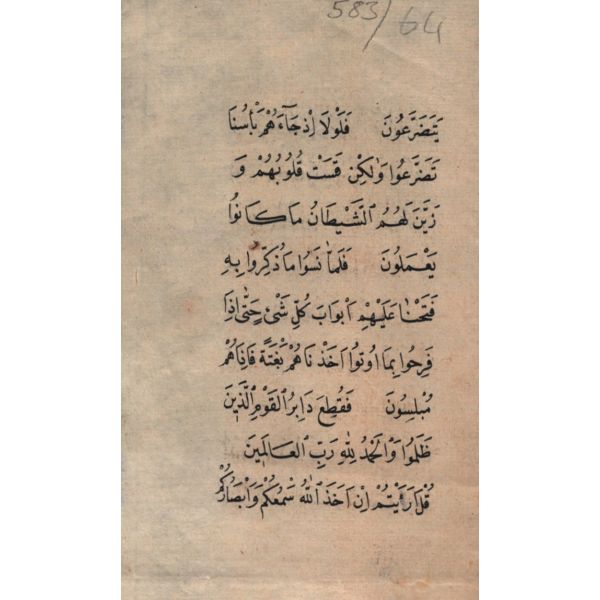 583/64
يَتَضَرَّعُونَ فَلَوْلَا اِذْ جَاۤءَهُمْ بَأْسُنَا
تَضَرَّعُوا وَلٰكِنْ قَسَتْ قُلُوبُهُمْ وَ
زَيَّنَ لَهُمُ الشَّيْطَانُ مَا كَانُوا
يَعْمَلُونَ فَلَمَّا نَسُوا مَا ذُكِّرُوا بِهِ
فَتَحْنَا عَلَيْهِمْ اَبْوَابَ كُلِّ شَئْ حَتّٰى اِذَا
فَرِحُوا بِمَا اُوتُوا اَخَذْنَاهُمْ بَغْتَةً فَاِذَاهُمْ
مُبْلِسُونَ فَقُطِعَ دَابِرُ الْقَوْمِ الَّذِينَ
ظَلَمُوا وَالْحَمْدُ لِلّٰهِ رَبِّ الْعَالَمِينَ
قُلْ اَرَءَيْتُمْ اِنْ اَخَذَ اللّٰهُ سَمْعَكُمْ وَاَبْصَارَكُمْ